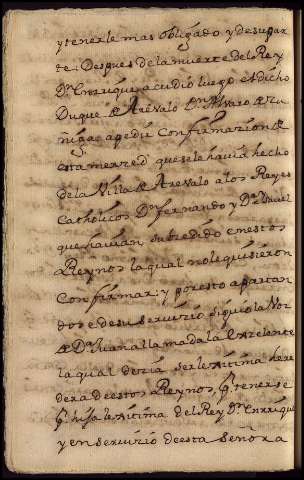 y tenerle mas obligado y de su par
te. Despues de la muerte del Rey
Dn Enrrique acudio luego el dicho
Duque de Arevalo Dn Alvaro de Zu
ñiga a pedir Confirmazion de
esta merzed que se le havia hecho
de la Villa de Arevalo a los Reyes
Catholicos Dn fernando y Da Ysavel
que havian subzedido en estos
Reynos la qual no le quisieron
Confirmar; y por esto apartan
dose de su servizio siguio la Voz
de Da Juana llamada la Exzelente
la qual dezia ser lexitima here
dera de estos Reynos, y tenerse
por hija lexitima del Rey Dn Enrrique
y en servizio de esta Señora